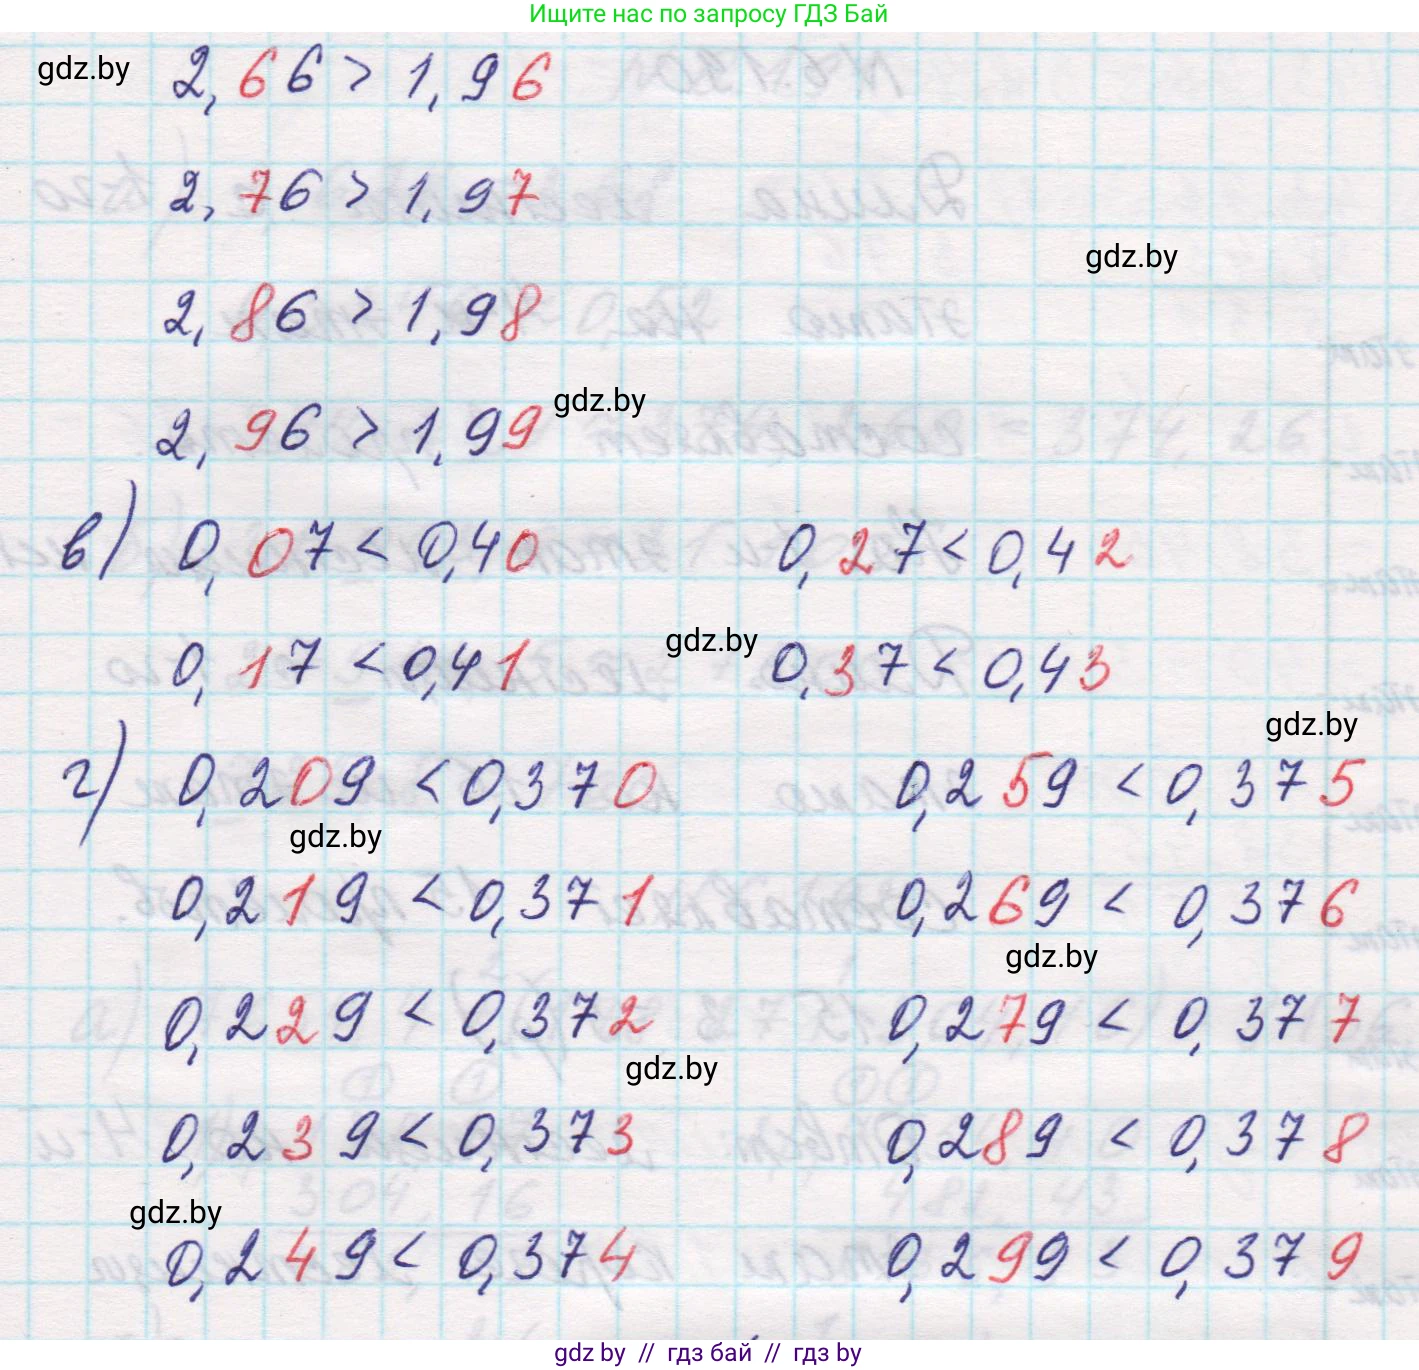 Ищите нас по запросу ГДЗ Бай
gdz.by
2,66 > 1,96
2,76 > 1,97
gdz.by
2,86 > 1,98
gdz.by
2,96 > 1,99
в) 0,07 < 0,40 0,27 < 0,42
gdz.by
0,17 < 0,41 0,37 < 0,43
gdz.by
г) 0,209 < 0,370 0,259 < 0,375
gdz.by
0,219 < 0,371 0,269 < 0,376
gdz.by
0,229 < 0,372 0,279 < 0,377
gdz.by
0,239 < 0,373 0,289 < 0,378
gdz.by
0,249 < 0,374 0,299 < 0,379
gdz.by // гдз бай // гдз by